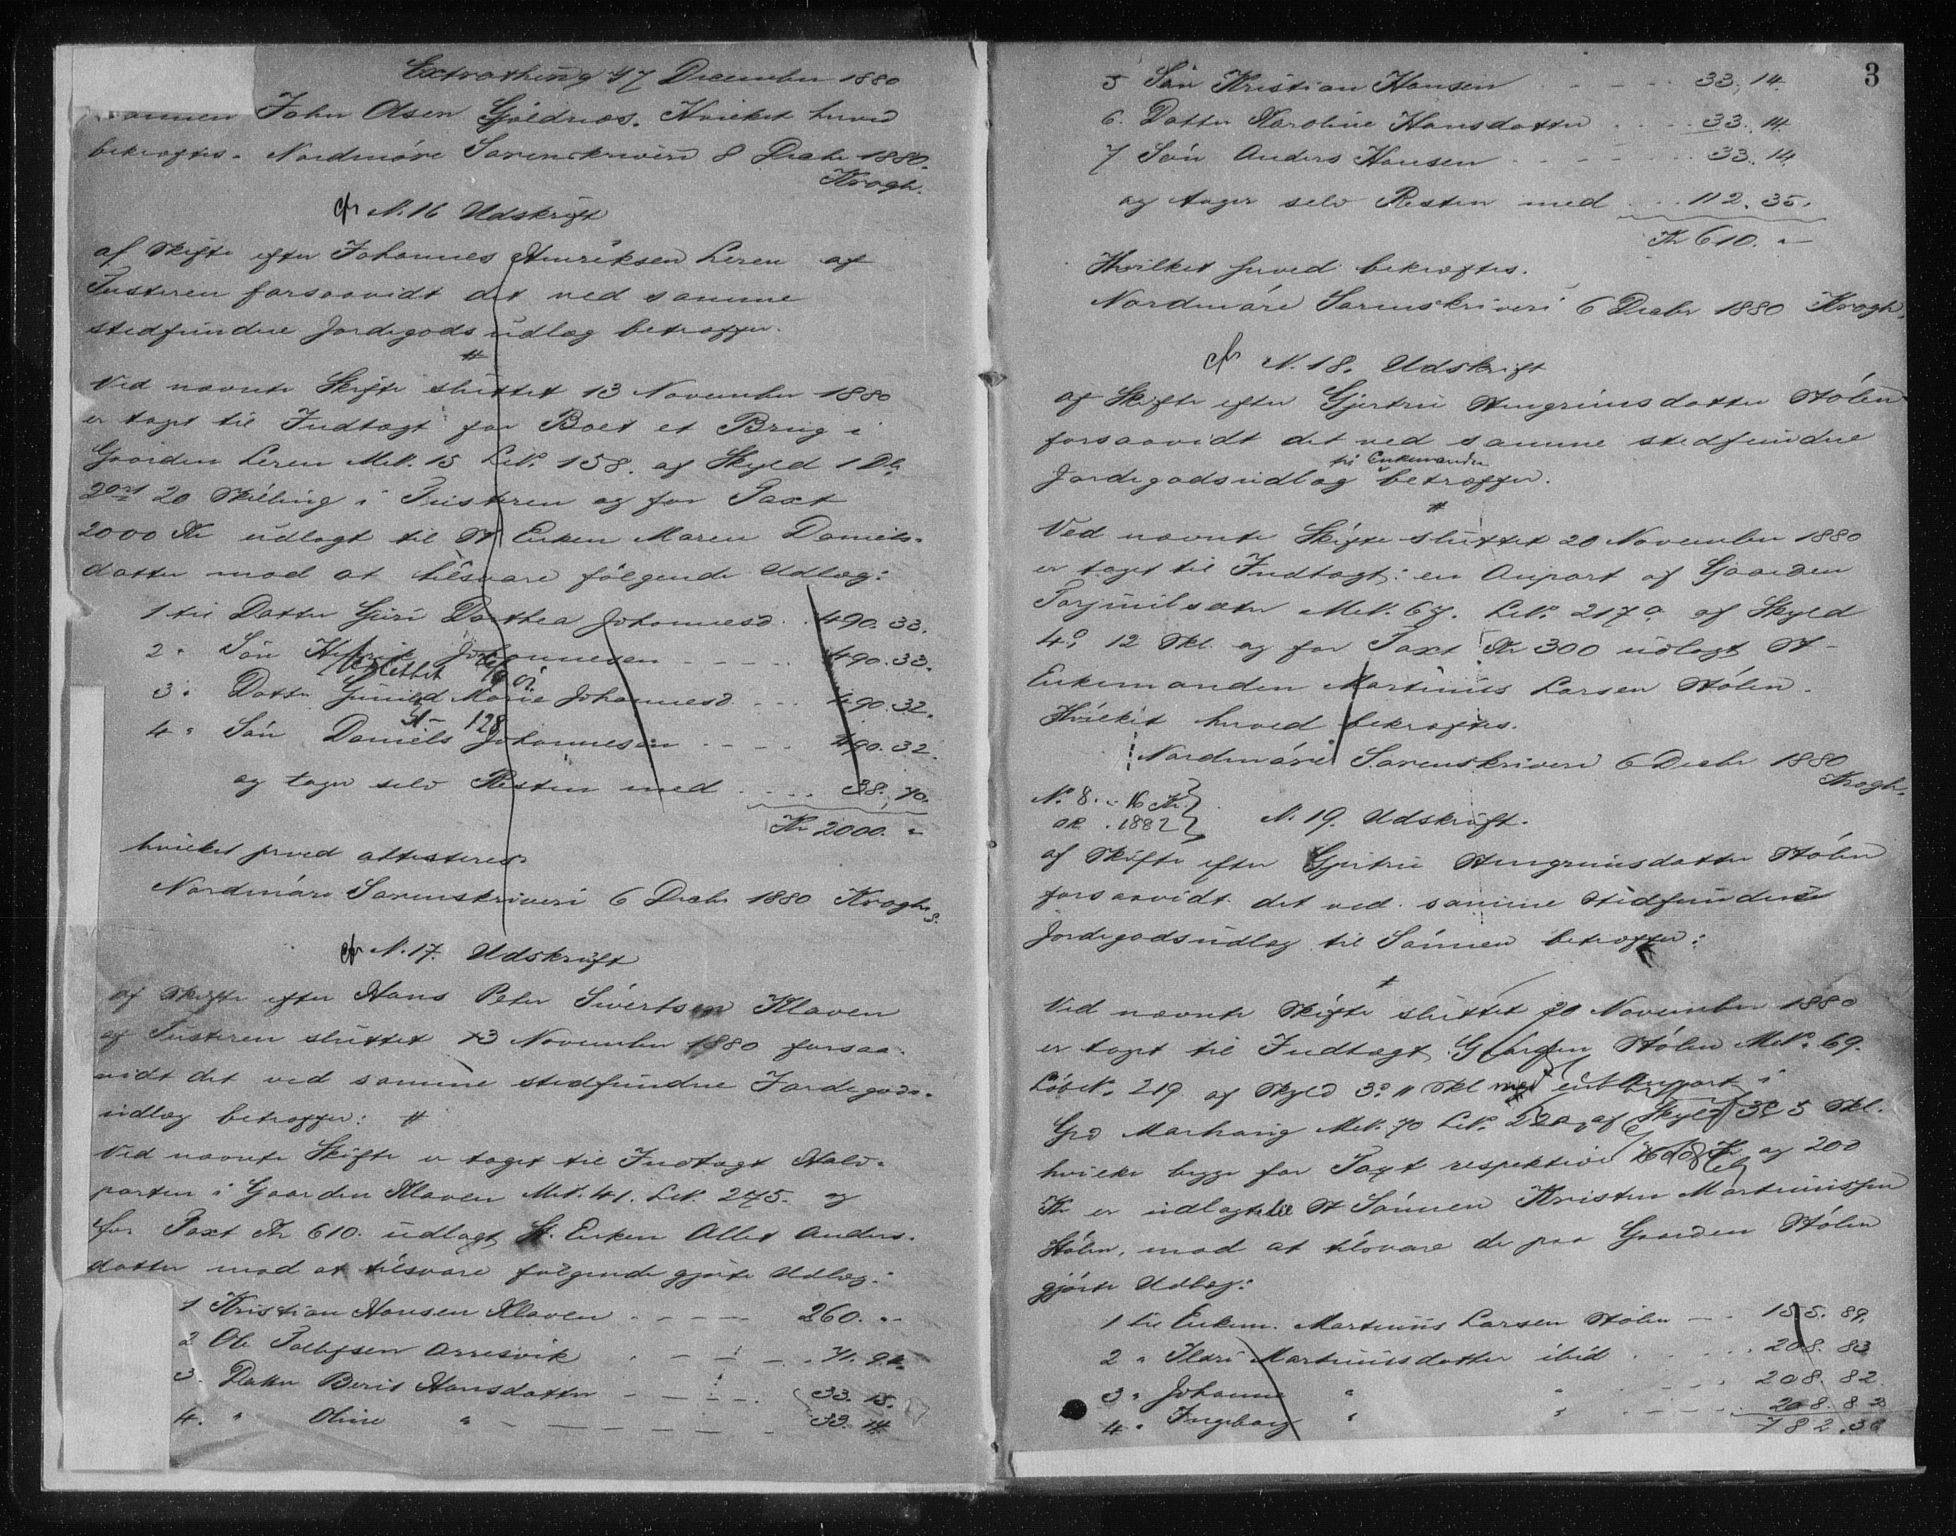 Extrathing 7 December 1880
John Olsen Gjeldnæs. Hvilket herved
bekræftes. Nordmøre Sorenskriveri 8 Decbr 1880.
Krogh.
cfr N. 16 Udskrift
af Skifte efter Johannes Henriksen Leren af
Tusteren forsaavidt det ved samme
stedfundne Jordegodsudlæg betræffer.
Ved nævnte Skifte sluttet 13 November 1880
er taget til Indtægt for Boet et Brug i
Gaarden Leren Mt.N. 15 L.N. 158. af Skyld 1 Dl.
2 ort 20 Skilling i Tusteren og for Taxt
2000 Kr udlagt til St Enken Maren Daniels-
datter mod at tilsvare følgende Udlæg:
1 til Datter Guri Dorthea Johannesd. . 490. 33.
2 " Søn Henrik Johannesen - - - - 490. 33.
udslettet
3 " Datter Gunild Marie Johannesd. - - - 490. 32.
128
4 " Søn Daniels Johannesen - - - - 490. 32.
og tager selv Resten med . . . . 38. 70.
Kr 2000. "
hvilket herved attesteres.
Nordmøre Sorenskriveri 6 Decbr 1880 Krogh
cfr N. 17. Udskrift
af Skifte efter Hans Peter Sivertsen Klaven
af Tusteren sluttet 13 November 1880 forsaa-
vidt det ved samme stedfundne Jordegods-
udlæg betræffer:
Ved nævnte Skifte er taget til Indtægt Halv-
parten i Gaarden Klaven Mt.N. 41. L.N. 275. og
for Taxt Kr 610. udlagt St. Enken Allet Anders-
datter mod at tilsvare følgende gjorte Udlæg:
1 Kristian Hansen Klaven - - - - 260. "
2 Ole Tollefsen Orresvik - - - - 71.
3. Datter Berit Hansdatter - - - - 33. 15.
4. " Oline " - - - - 33. 14
3
5 Søn Kristian Hansen - - - - 33. 14.
6. Datter Karoline Hansdatter . . . . 33. 14.
7 Søn Anders Hansen - - - - 33. 14
og tager selv Resten med . . . 112. 35.
Kr 610. "
Hvilket herved bekræftes.
Nordmøre Sorenskriveri 6 Decbr 1880 Krogh.
cfr N. 18. Udskrift
af Skifte efter Gjertru Stengrimsdatter Stølen
forsaavidt det ved samme stedfundne
til Enkemanden
Jordegodsudlæg betræffer.
Ved nævnte Skifte sluttet 20 November 1880
er taget til Indtægt: en Anpart af Gaarden
Torjulsæter Mt.N. 67. L.N. 217a af Skyld
4 o 12 Skl. og for Taxt Kr 300 udlagt St
Enkemanden Martinus Larsen Stølen.
Hvilket herved bekræftes.
Nordmøre Sorenskriveri 6 Decbr 1880
Krogh.
N. 8. 16 Kr.
1882
N. 19. Udskrift.
af Skifte efter Gjertru Stengrimsdatter Stølen
forsaavidt det ved samme stedfundne
Jordegodsudlæg til Sønnen betræffer:
Ved nævnte Skifte sluttet 20 November 1880
er taget til Indtægt Gaarden Stølen Mt.N. 69.
LøbeN. 219 af Skyld 3 o " Skl. med en Anpart i
Grd Mt.N. 70 L.N. af Skyld 3 o 5 Skl.
hvilke begge for Taxt respektive Kr og 200
Kr er udlagt til St Sønnen Kristen Martinussen
Stølen, mod at tilsvare de paa Gaarden Stølen
gjorte Udlæg:
1 til Enkem. Martinus Larsen Stølen - - 155. 89.
2 " Ildri Martinusdatter ibid . . . . 208. 83
3 " Johanne " " . . . . 208. 82.
4 " Ingeborg " " . . . . 208. 82
782. 36